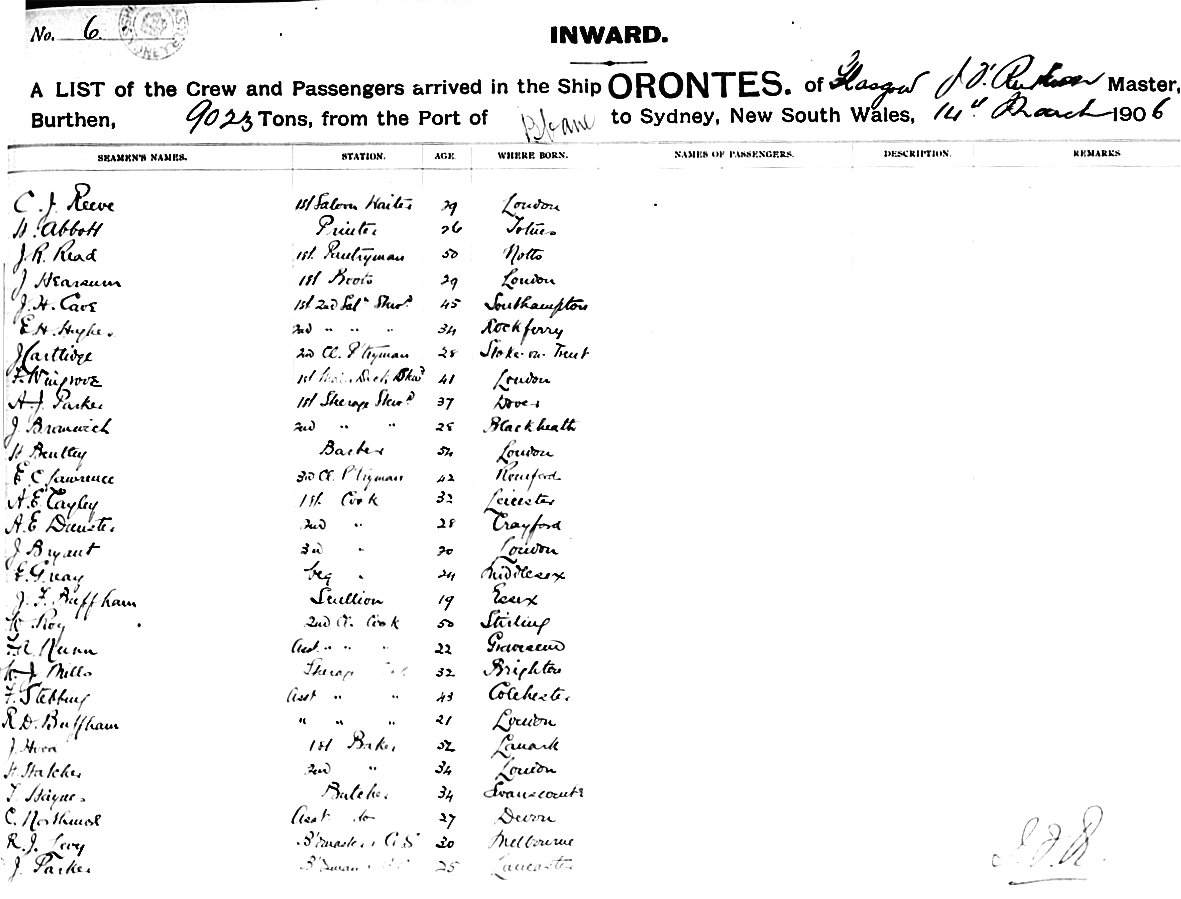 No. 6
INWARD.
A LIST of the Crew and Passengers arrived in the Ship ORONTES. of Glasgow J. F. Master,
Burthen, 9023 Tons, from the Port of to Sydney, New South Wales, 14th March 1906
SEAMEN'S NAMES. STATION. AGE. WHERE BORN. NAMES OF PASSENGERS. DESCRIPTION. REMARKS
C. J. Reeve 1st Saloon Waiter 29 London
H. Abbott Printer 26 Totnes
J. R. Read 1st. Pantryman 50 Notts
J Hearsum 1st Boots 29 London
J. H. Cave 1st 2nd Saln Stwd 45 Southampton
E. H. Hughes 2nd " " " 34 Rockferry
J Cartlidge 2nd Cl. P'tryman 28 Stoke-on-Trent
F. Wingrove 1st Deck Stwd 41 London
A. J. Parker 1st Sterage Stwd 37 Dover
J. Bramwich 2nd " " 28 Blackheath
H Bentley Barber 54 London
E. C. Lawrence 3rd Cl. P'tryman 42 Romford
A. E. Tayley 1st. Cook 32 Leicester
A. E Dunster 2nd " 28 Crayford
J Bryant 3rd " 20 London
E. Gray Veg " 24 Middlesex
J. F. Buffham Scullion 19 Essex
Roy 2nd Cl. Cook 50 Stirling
Nunn Asst " " " 22 Gravesend
J. Mills Sterage 32 Brighton
F. Stebbing Asst " " 43 Colchester
R. D. Buffham " " " 21 London
J. 1st Baker 52 Lanark
H. Hatcher 2nd " 34 London
Haynes Butcher 34 Swanscombe
C. Northmod Asst do 27 Devon
R. J. Levy 30 Melbourne
J. Parker 25 Lancaster
J. F. R.